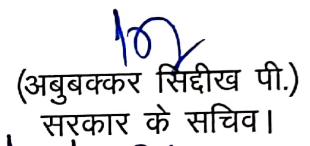 (अबुबक्कर सिद्दीख पी.)
सरकार के सचिव।